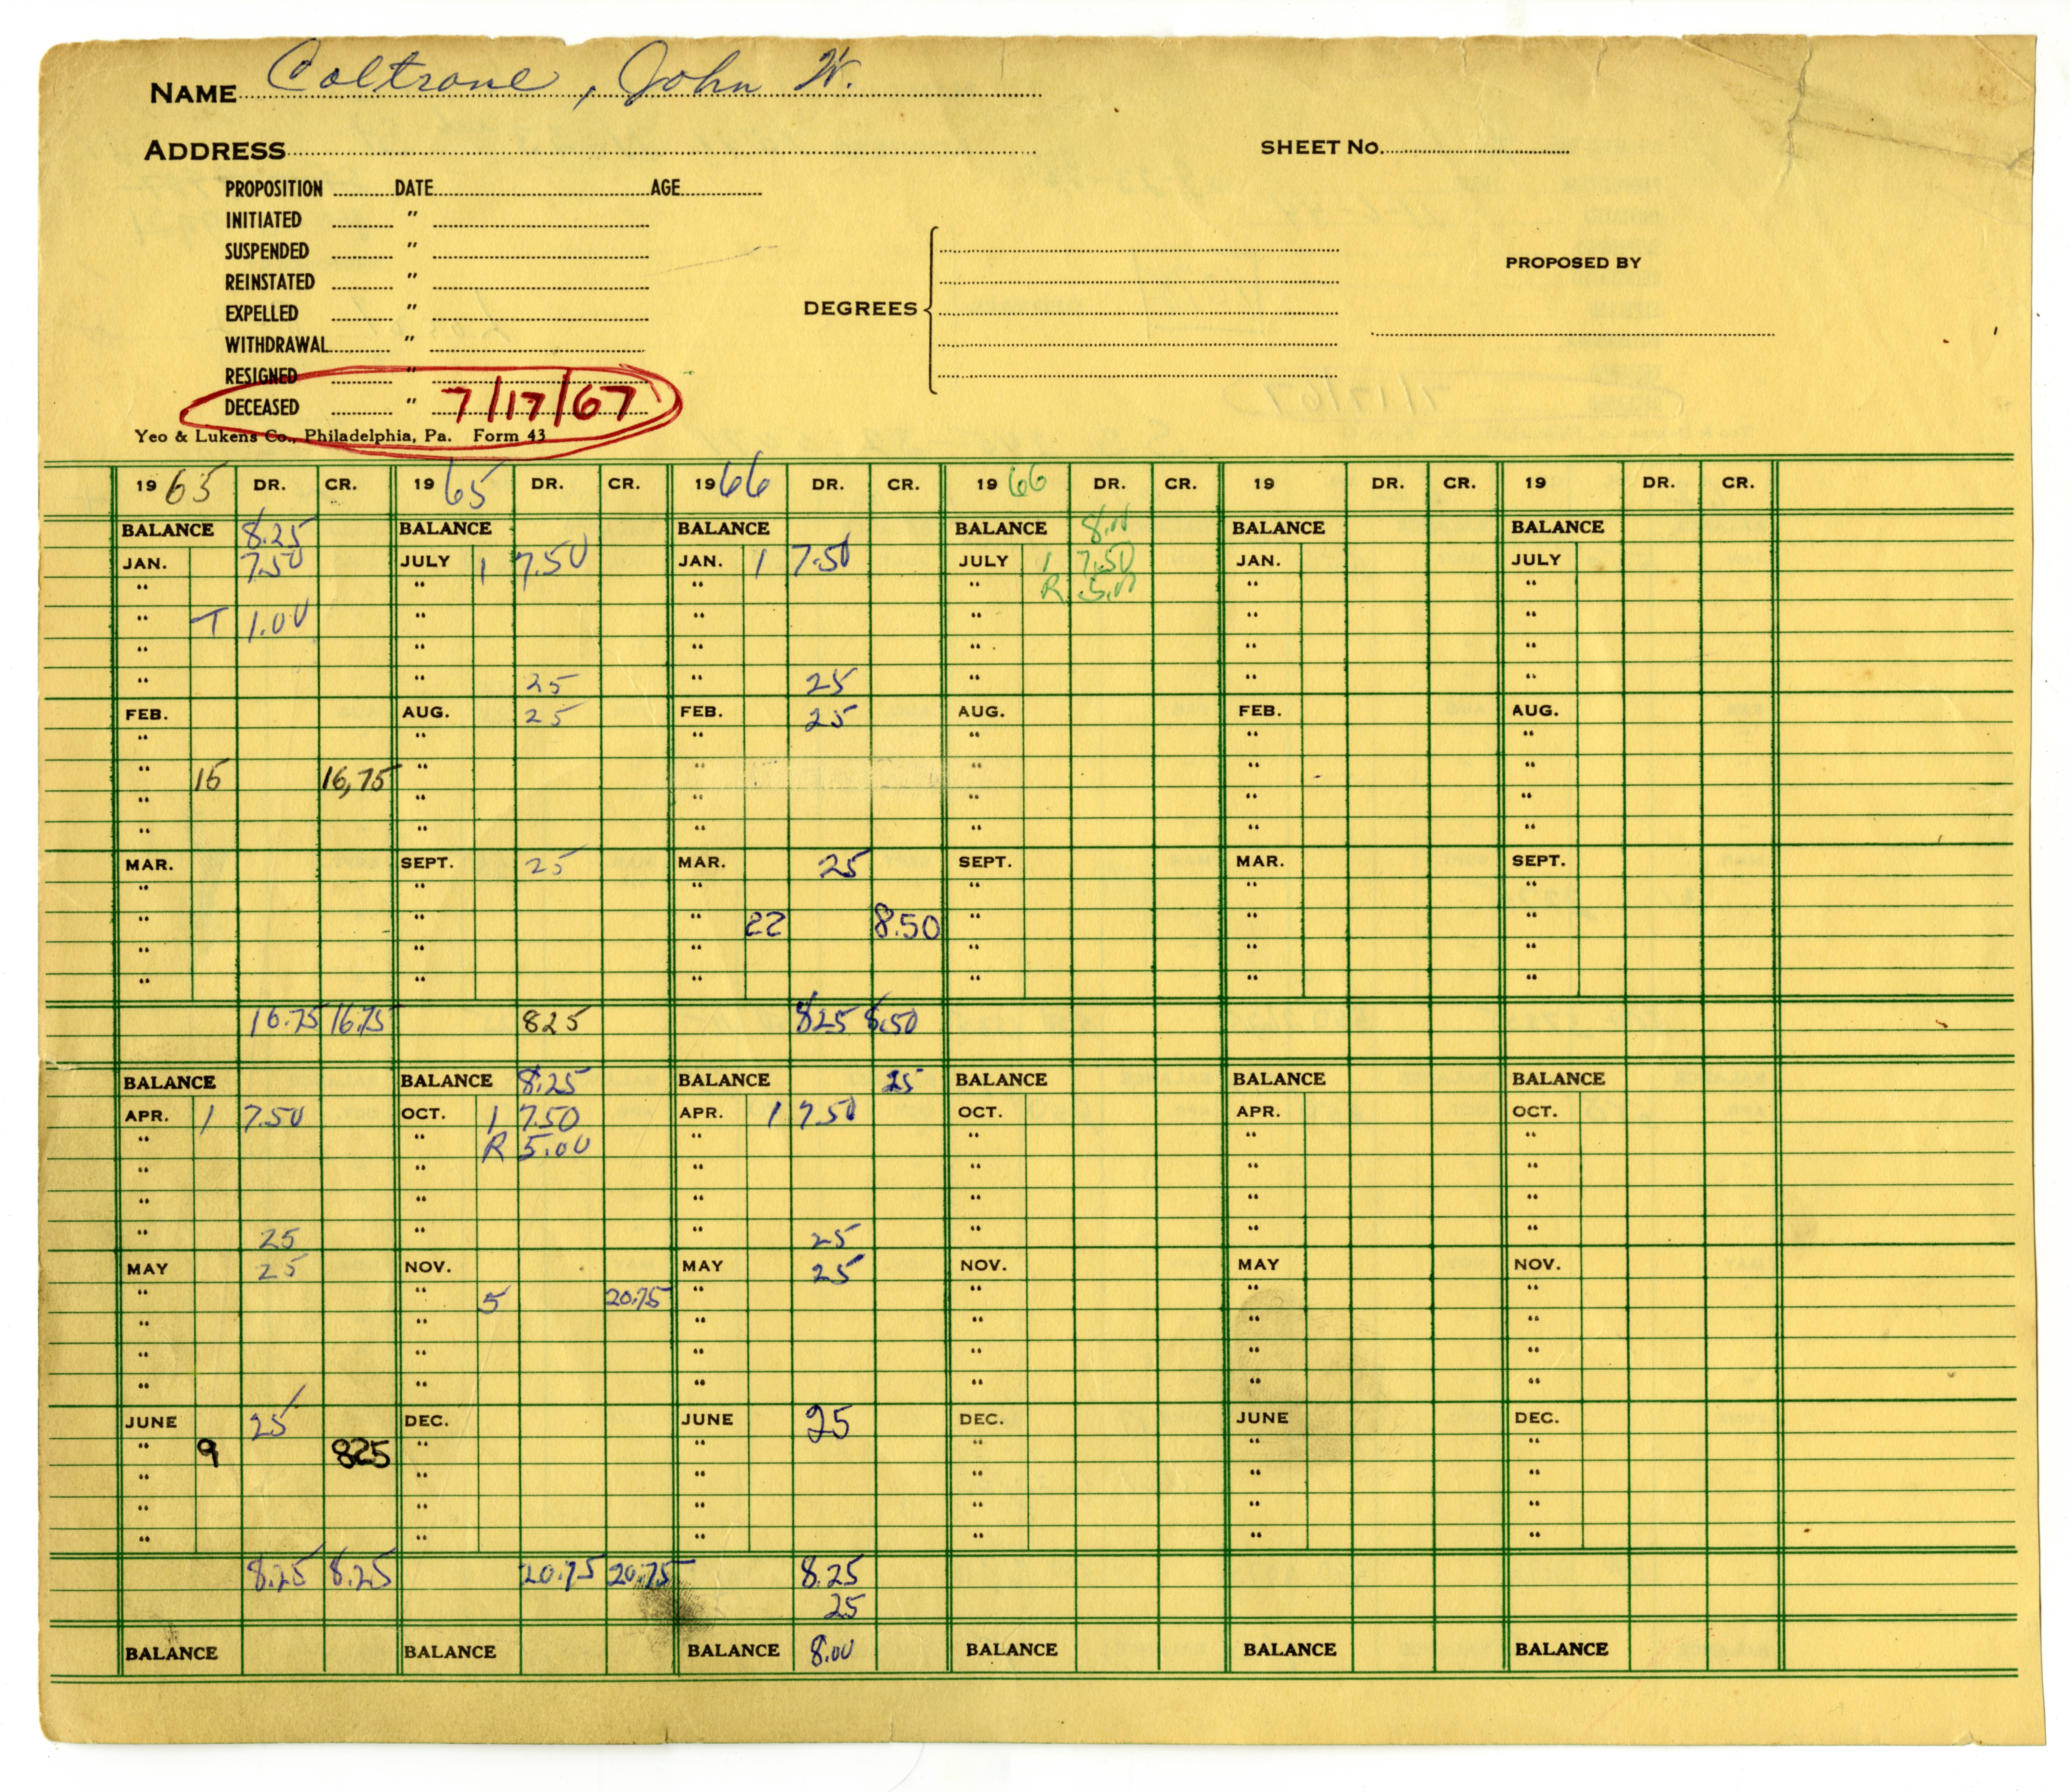 NAME Coltrane, John W.
ADDRESS SHEET No.
PROPOSITION DATE AGE
INITIATED "
SUSPENDED "
REINSTATED "
EXPELLED "
WITHDRAWAL "
RESIGNED "
DECEASED " 7/17/67
DEGREES
PROPOSED BY
Yeo & Lukens Co., Philadelphia, Pa. Form 43
19 65 DR. CR. 19 65 DR. CR. 19 66 DR. CR. 19 66 DR. CR. 19 DR. CR. 19 DR. CR.
BALANCE 8.25 BALANCE BALANCE BALANCE 8.00 BALANCE BALANCE
JAN. 7.50 JULY 1 7.50 JAN. 1 7.50 JULY 1 7.50 JAN. JULY
" " " " R 5.00 " "
" T 1.00 " " " " "
" " " " " "
" " 25 " 25 " " "
FEB. AUG. 25 FEB. 25 AUG. FEB. AUG.
" " " " " "
" 15 16,75 " " " " "
" " " " " "
" " " " " "
MAR. SEPT. 25 MAR. 25 SEPT. MAR. SEPT.
" " " " " "
" " " 22 8.50 " " "
" " " " " "
" " " " " "
16.75 16.75 825 8.25 8.50
BALANCE BALANCE 8.25 BALANCE 25 BALANCE BALANCE BALANCE
APR. 1 7.50 OCT. 1 7.50 APR. 1 7.50 OCT. APR. OCT.
" " R 5.00 " " " "
" " " " " "
" " " " " "
" 25 " " 25 " " "
MAY 25 NOV. MAY 25 NOV. MAY NOV.
" " 5 20.75 " " " "
" " " " " "
" " " " " "
" " " " " "
JUNE 25 DEC. JUNE 25 DEC. JUNE DEC.
" 9 825 " " " " "
" " " " " "
" " " " " "
" " " " " "
8.25 8.25 20.75 20.75 8.25
25
BALANCE BALANCE BALANCE 8.00 BALANCE BALANCE BALANCE